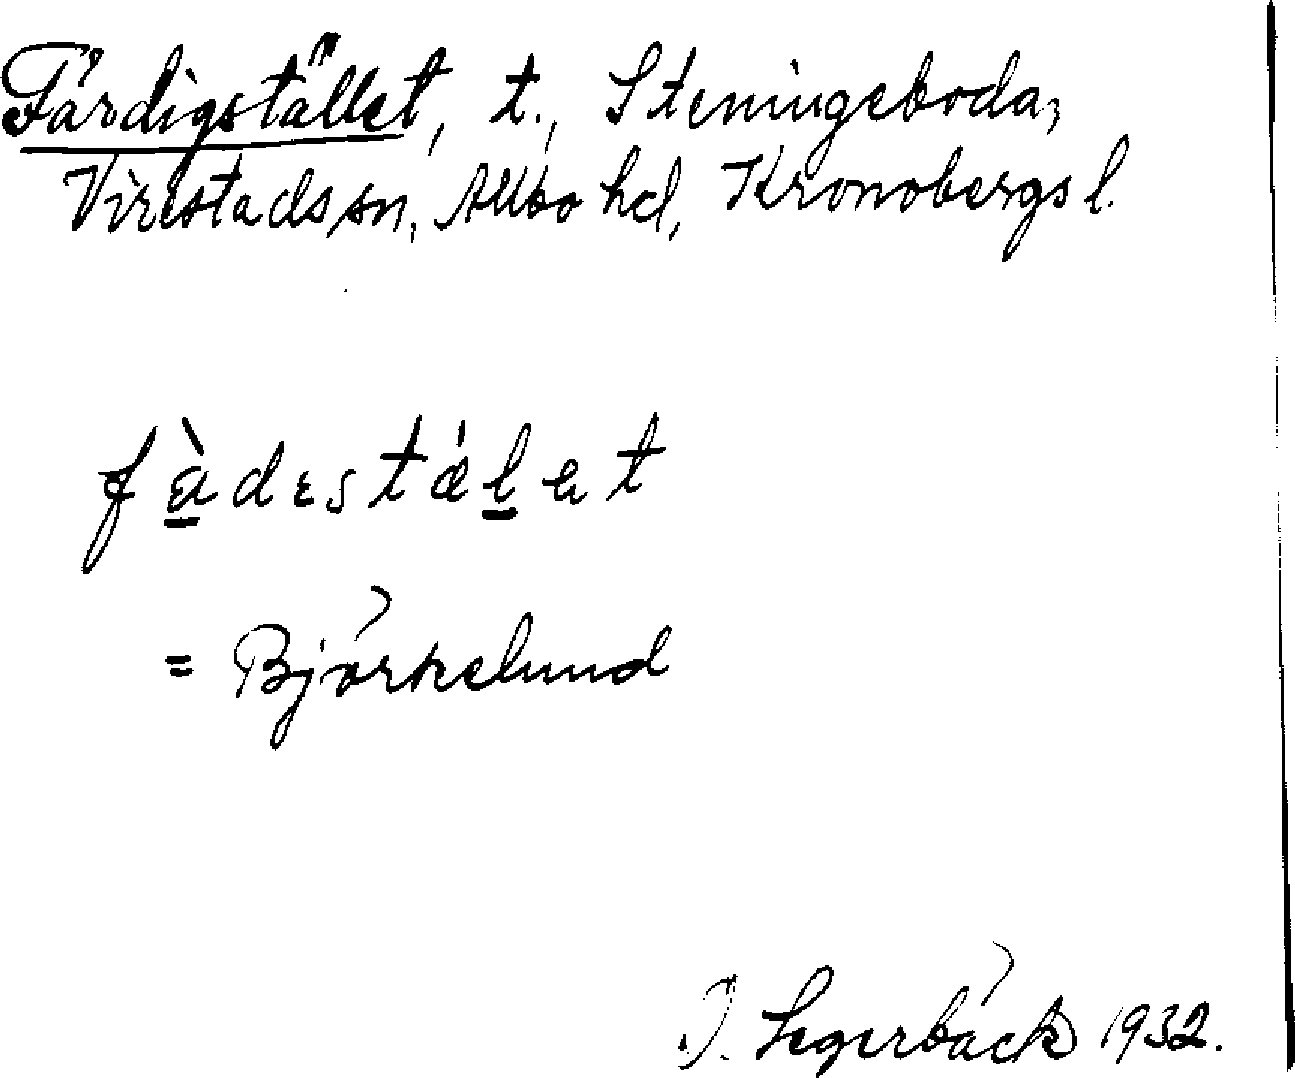 Färdigstället, t., Steningeboda,
Virestads sn, Allbo hd, Kronobergs l.
fàdɛstáḻet
= Björkelund
J. Segerbäck 1932.